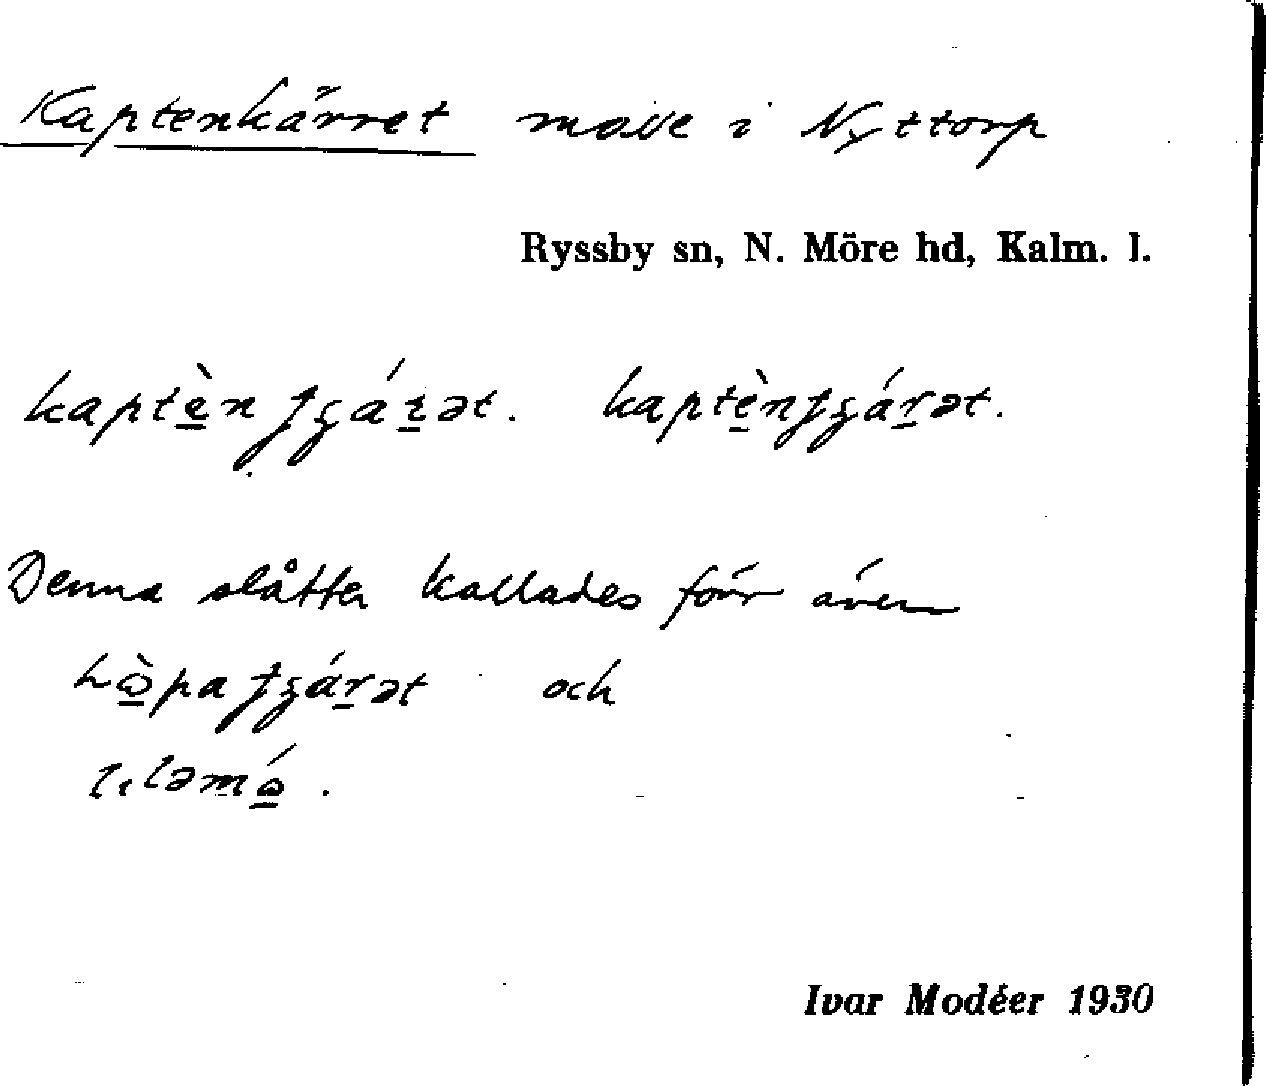 Kaptenkärret made i Nyttorp
Ryssby sn, N. Möre hd, Kalm. l.
kaptèn ʃʒár̲ət. kaptènʃʒár̲ət.
Denna slåtter kallades förr även
och
Ivar Modéer 1930